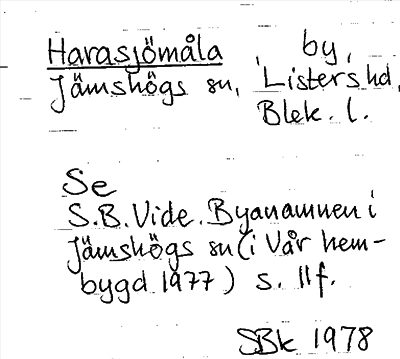 Harasjömåla, by,
Jämshögs sn, Listers hd,
Blek. l.
Se
S.B. Vide. Byanamnen i
Jämshögs sn (i Vår hem-
bygd 1977) s. 11f.
SBk 1978